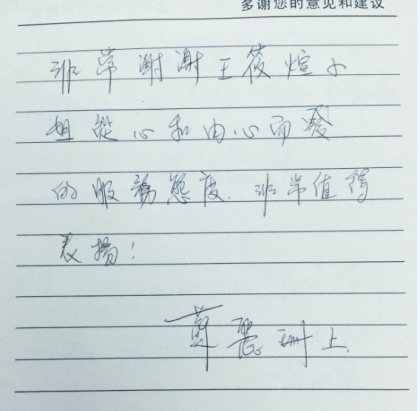 多谢您的意见和建议
非常谢谢王筱煊小
姐從心和由心而發
的服務態度.非常值得
表揚!
上.